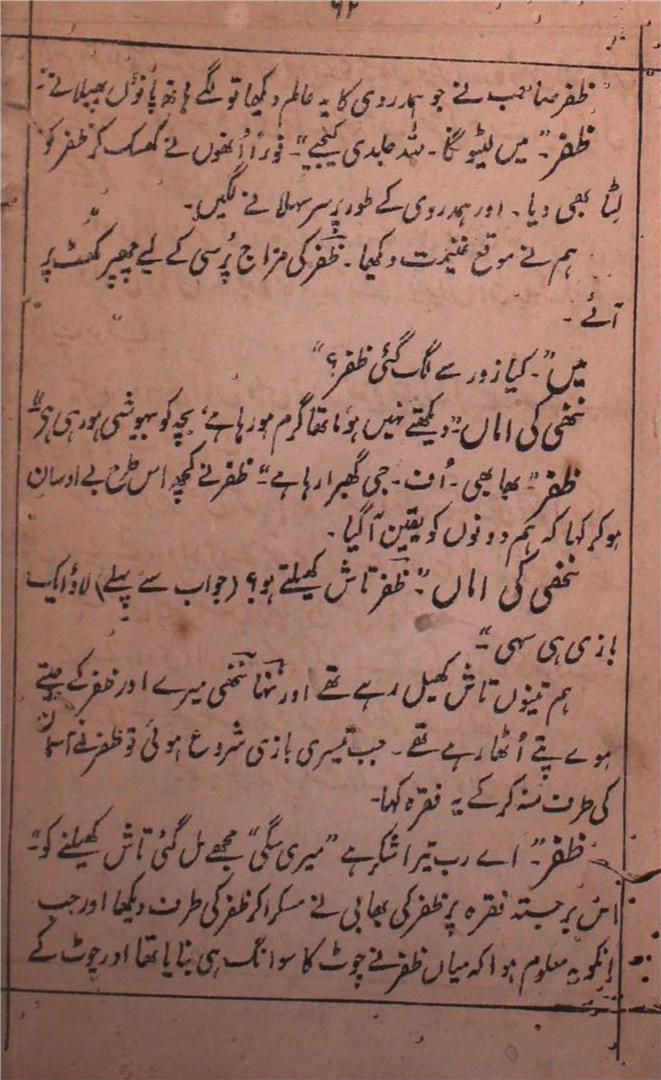 ۶۲
ظفر صاحب نے جو ہمدردی کا یہ عالم دیکھا تو لگے ہاتھ پانوں پھیلانے۔
ظفر۔" میں لیٹوں گا۔ للہ جلدی کیجیے"۔ فوراً اُنھوں نے کھسک کر ظفر کو
لِٹا بھی دیا۔ اور ہمدردی کے طور پر سر سہلانے لگیں۔
ہم نے موقع غنیمت دیکھا۔ ظفر کی مزاج پُرسی کے لیے چھپر کھٹ پر
آئے۔
میں"۔ کیا زور سے لگ گئی ظفر؟"
ننھی کی اماں۔"دیکھتے نہیں ہو ماتھا گرم ہو رہا ہے، بچہ کو بیہوشی ہو رہی ہی"
ظفر۔" بھابھی۔ اُف۔ جی گھبرا رہا ہے"۔ ظفر نے کچھ اس طرح بے اوسان
ہو کر کہا کہ ہم دونوں کو یقین آگیا۔
ننھی کی اماں "۔ ظفر تاش کھیلتے ہو؟ (جواب سے پہلے) لاؤ ایک
بازی ہی سہی"۔
ہم تینوں تاش کھیل رہے تھے اور ننھا ننھی میرے اور ظفر کے جیتے
ہوے پتے اُٹھا رہے تھے۔ جب تیسری بازی شروع ہوئی تو ظفر نے آسمان
کی طرف منہ کر کے یہ فقرہ کہا۔
ظفر۔" اے رب تیرا شکر ہے "میری سگی" مجھے مل گئی تاش کھیلنے کو"۔
اس برجستہ فقرہ پر ظفر کی بھابی نے مسکرا کر ظفر کی طرف دیکھا اور جب
اِنکو یہ معلوم ہوا کہ میاں ظفر نے چوٹ کا سوانگ ہی بنایا تھا اور چوٹ کے